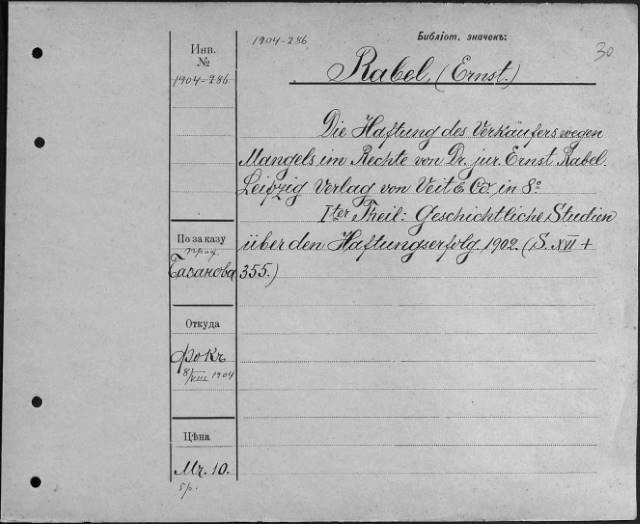 1904-286
Библіот. значекъ:
30
Rabel, (Ernst.)
Инв.
№
1904-286
Die Haftung des Verkäufers wegen
Mangels im Rechte von Dr. jur. Ernst Rabel.
Leipzig Verlag von Veit & Co, in 8º
Iter Theil: Geschichtliche Studien
über den Haftungserfolg 1902. (S. XVI +
355.)
По заказу
проф.
Базанова
Откуда
Фокъ
8/VIII 1904
Цѣна
Mr. 10.